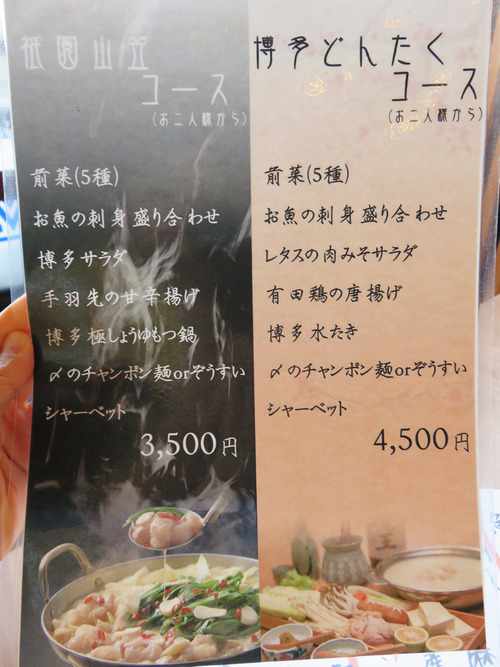 祇園山笠
コース
(お二人様から)
前菜(5種)
お魚の刺身盛り合わせ
博多サラダ
手羽先の甘辛揚げ
博多極しょうゆもつ鍋
〆のチャンポン麺orぞうすい
シャーベット
3,500円
博多どんたく
コース
(お二人様から)
前菜(5種)
お魚の刺身盛り合わせ
レタスの肉みそサラダ
有田鶏の唐揚げ
博多水たき
〆のチャンポン麺orぞうすい
シャーベット
4,500円